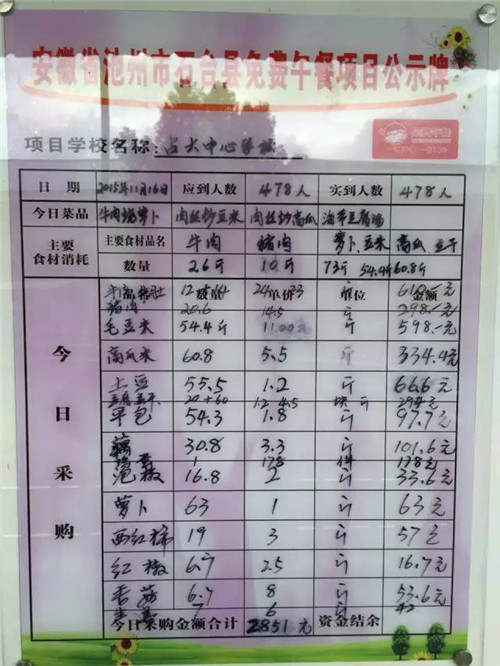 安徽省池州市石台县免费午餐项目公示牌
项目学校名称: 占大中心学校
免费午餐
日期 2015年11月16日 应到人数 478人 实到人数 478人
今日菜品 牛肉烧萝卜 肉丝炒豆米 肉丝炒高瓜 海带豆腐汤
主要食材消耗 主要食材品名 牛肉 猪肉 萝卜、豆米 高瓜 豆干
数量 26斤 10斤 73斤 54.4斤 60.8斤
今日采购
品名 数量 单价 单位 金额
猪肉 20.6 14.5 斤 298.-元
毛豆米 54.4斤 11.00元 斤 598.-元
高瓜米 60.8 5.5 斤 334.4元
土豆 55.5 1.2 斤 66.6元
20+60 1.2 4.5 块 斤 294元
平包 54.3 1.8 斤 97.7元
藕 30.8 3.3 斤 101.6元
1 178 件 178元
椒 16.8 2 斤 33.6元
萝卜 63 1 斤 63元
西红柿 19 3 斤 57元
红椒 6.7 2.5 斤 16.7元
毛菇 6.7 8 斤 53.6元
7 6 斤 42
今日采购金额合计 2851元 资金结余